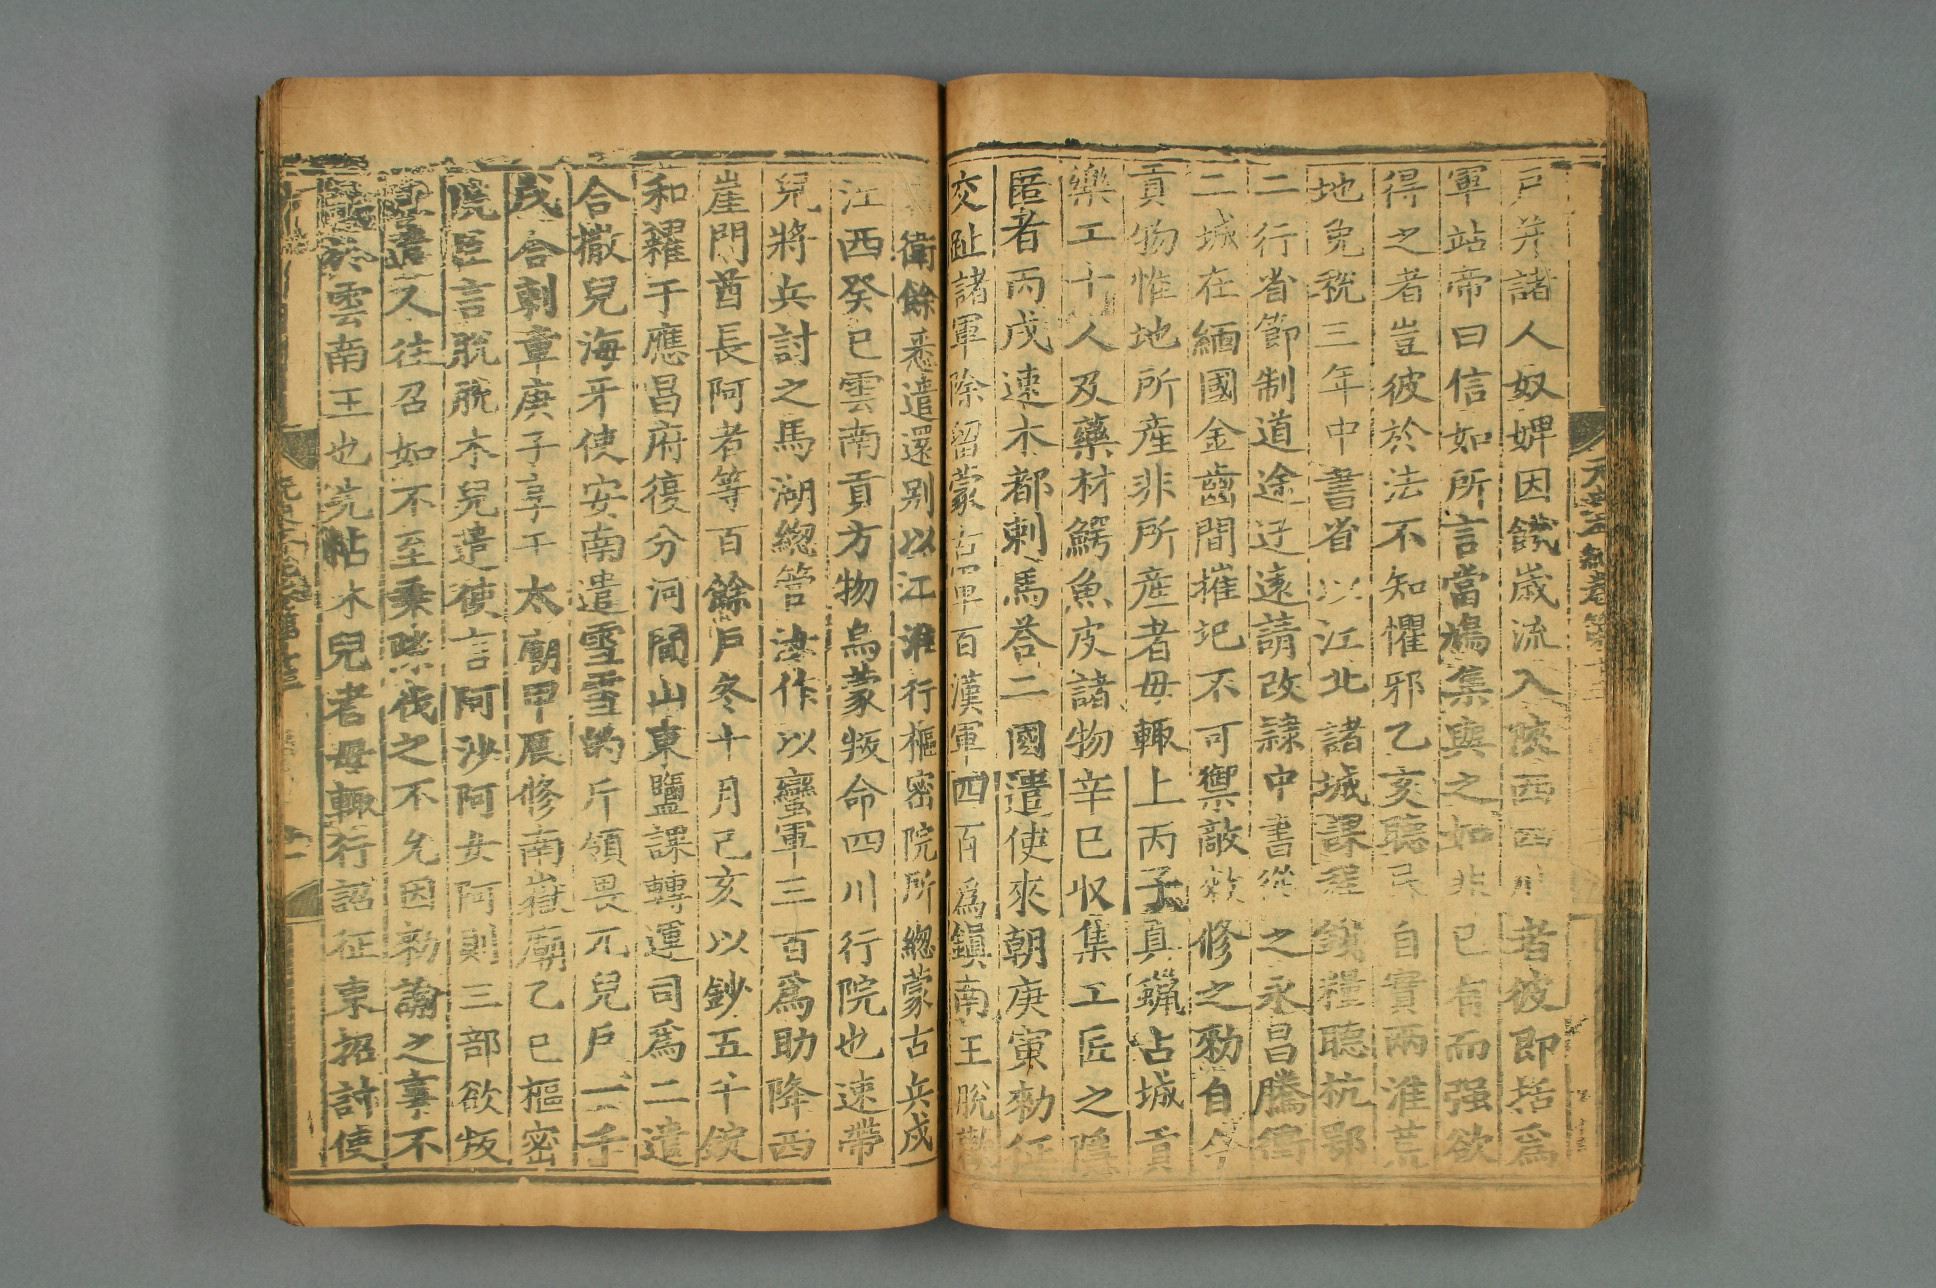 戶并諸人奴婢因饑歲流入陝西四川者彼即括爲
軍站帝曰信如所言當鳩集與之如非已有而强欲
得之者豈彼於法不知懼邪乙亥聽民自實兩淮荒
地免稅三年中書省以江北諸城課程錢糧聽杭鄂
二行省節制道途迂遠請改隸中書從之永昌騰衝
二城在緬國金齒間摧圮不可禦敵敕修之勑自今
貢物惟地所産非所産者毋輙上丙子真蠟占城貢
樂工十人及藥材鰐魚皮諸物辛巳収集工匠之隱
匿者丙戌速木都剌馬荅二國遣使來朝庚寅勑征
交趾諸軍除留蒙古軍百漢軍四百爲鎮南王脫歡
衛餘悉遣還别以江淮行樞密院所緫蒙古兵戍
江西癸巳雲南貢方物烏蒙叛命四川行院也速帶
兒將兵討之馬湖緫管汝作以蠻軍三百爲助降西
崖門酋長阿者等百餘戶冬十月己亥以鈔五千錠
和糴于應昌府復分河間山東鹽課轉運司爲二遣
合撒兒海牙使安南遣雪雪的斤領畏兀兒戶一千
戍合剌章庚子享于太廟甲辰修南嶽廟乙巳樞密
院臣言脫脫木兒遣使言阿沙阿女阿則三部欲叛
遣人往召如不至乗隙伐之不允因勑諭之事不
於雲南王也先帖木兒者毋輙行詔征東招討使
元史本紀卷第十三